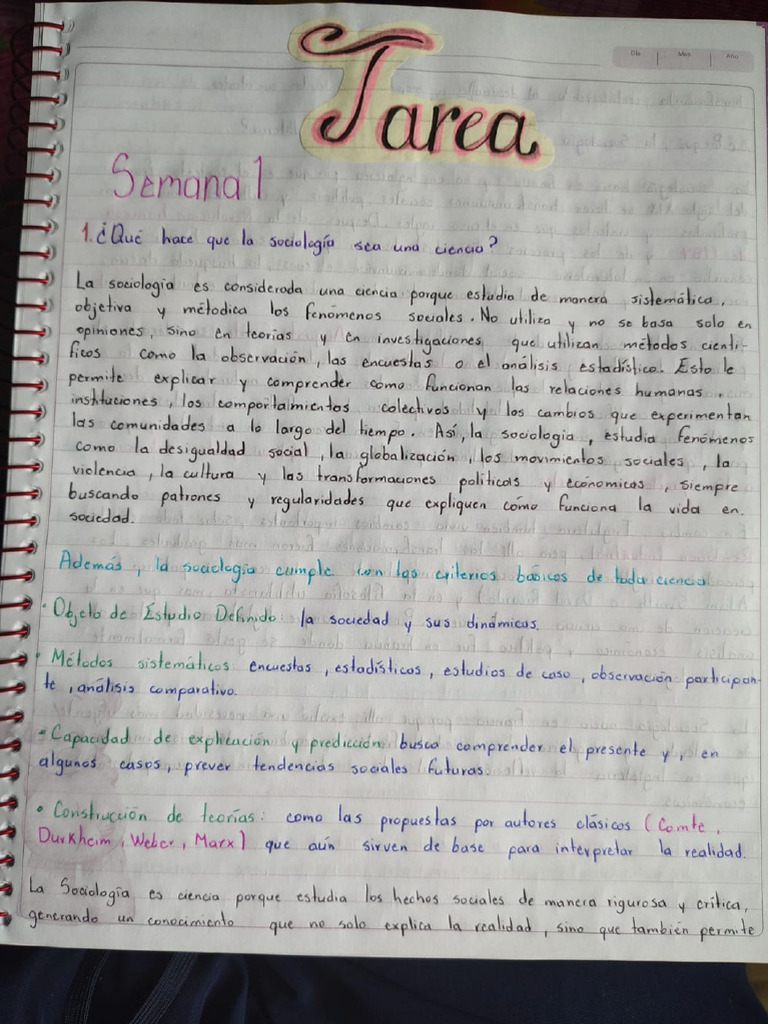 Tarea
Día Mes Año
Semana 1
1. ¿Qué hace que la sociología sea una ciencia?
La sociología es considerada una ciencia porque estudia de manera sistemática,
objetiva y métodica los fenómenos sociales. No utiliza y no se basa solo en
opiniones, sino en teorías y en investigaciones que utilizan métodos cientí-
ficos como la observación, las encuestas o el análisis estadístico. Esto le
permite explicar y comprender cómo funcionan las relaciones humanas,
instituciones, los comportaimientos colectivos y los cambios que experimentan
las comunidades a lo largo del tiempo. Así, la sociología, estudia fenómenos
como la desigualdad social, la globalización, los movimientos sociales, la
violencia, la cultura y las transformaciones políticas y económicas, siempre
buscando patrones y regularidades que expliquen cómo funciona la vida en
sociedad.
Además, la sociología cumple con los criterios básicos de toda ciencia
• Objeto de Estudio Definido: la sociedad y sus dinámicas.
• Métodos sistemáticos encuestas, estadísticos, estudios de caso, observación participan-
te, análisis comparativo.
• Capacidad de explicación y predicción busca comprender el presente y, en
algunos casos, prever tendencias sociales futuras.
• Construcción de teorías: como las propuestas por autores clásicos (Comte,
Durkheim, Weber, Marx) que aún sirven de base para interpretar la realidad.
La Sociología es ciencia porque estudia los hechos sociales de manera rigurosa y crítica,
generando un conocimiento que no solo explica la realidad, sino que también permite